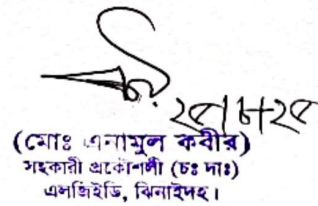 ২৫।৮।২৫
(মোঃ এনামুল কবীর)
সহকারী প্রকৌশলী (চঃ দাঃ)
এলজিইডি, ঝিনাইদহ।